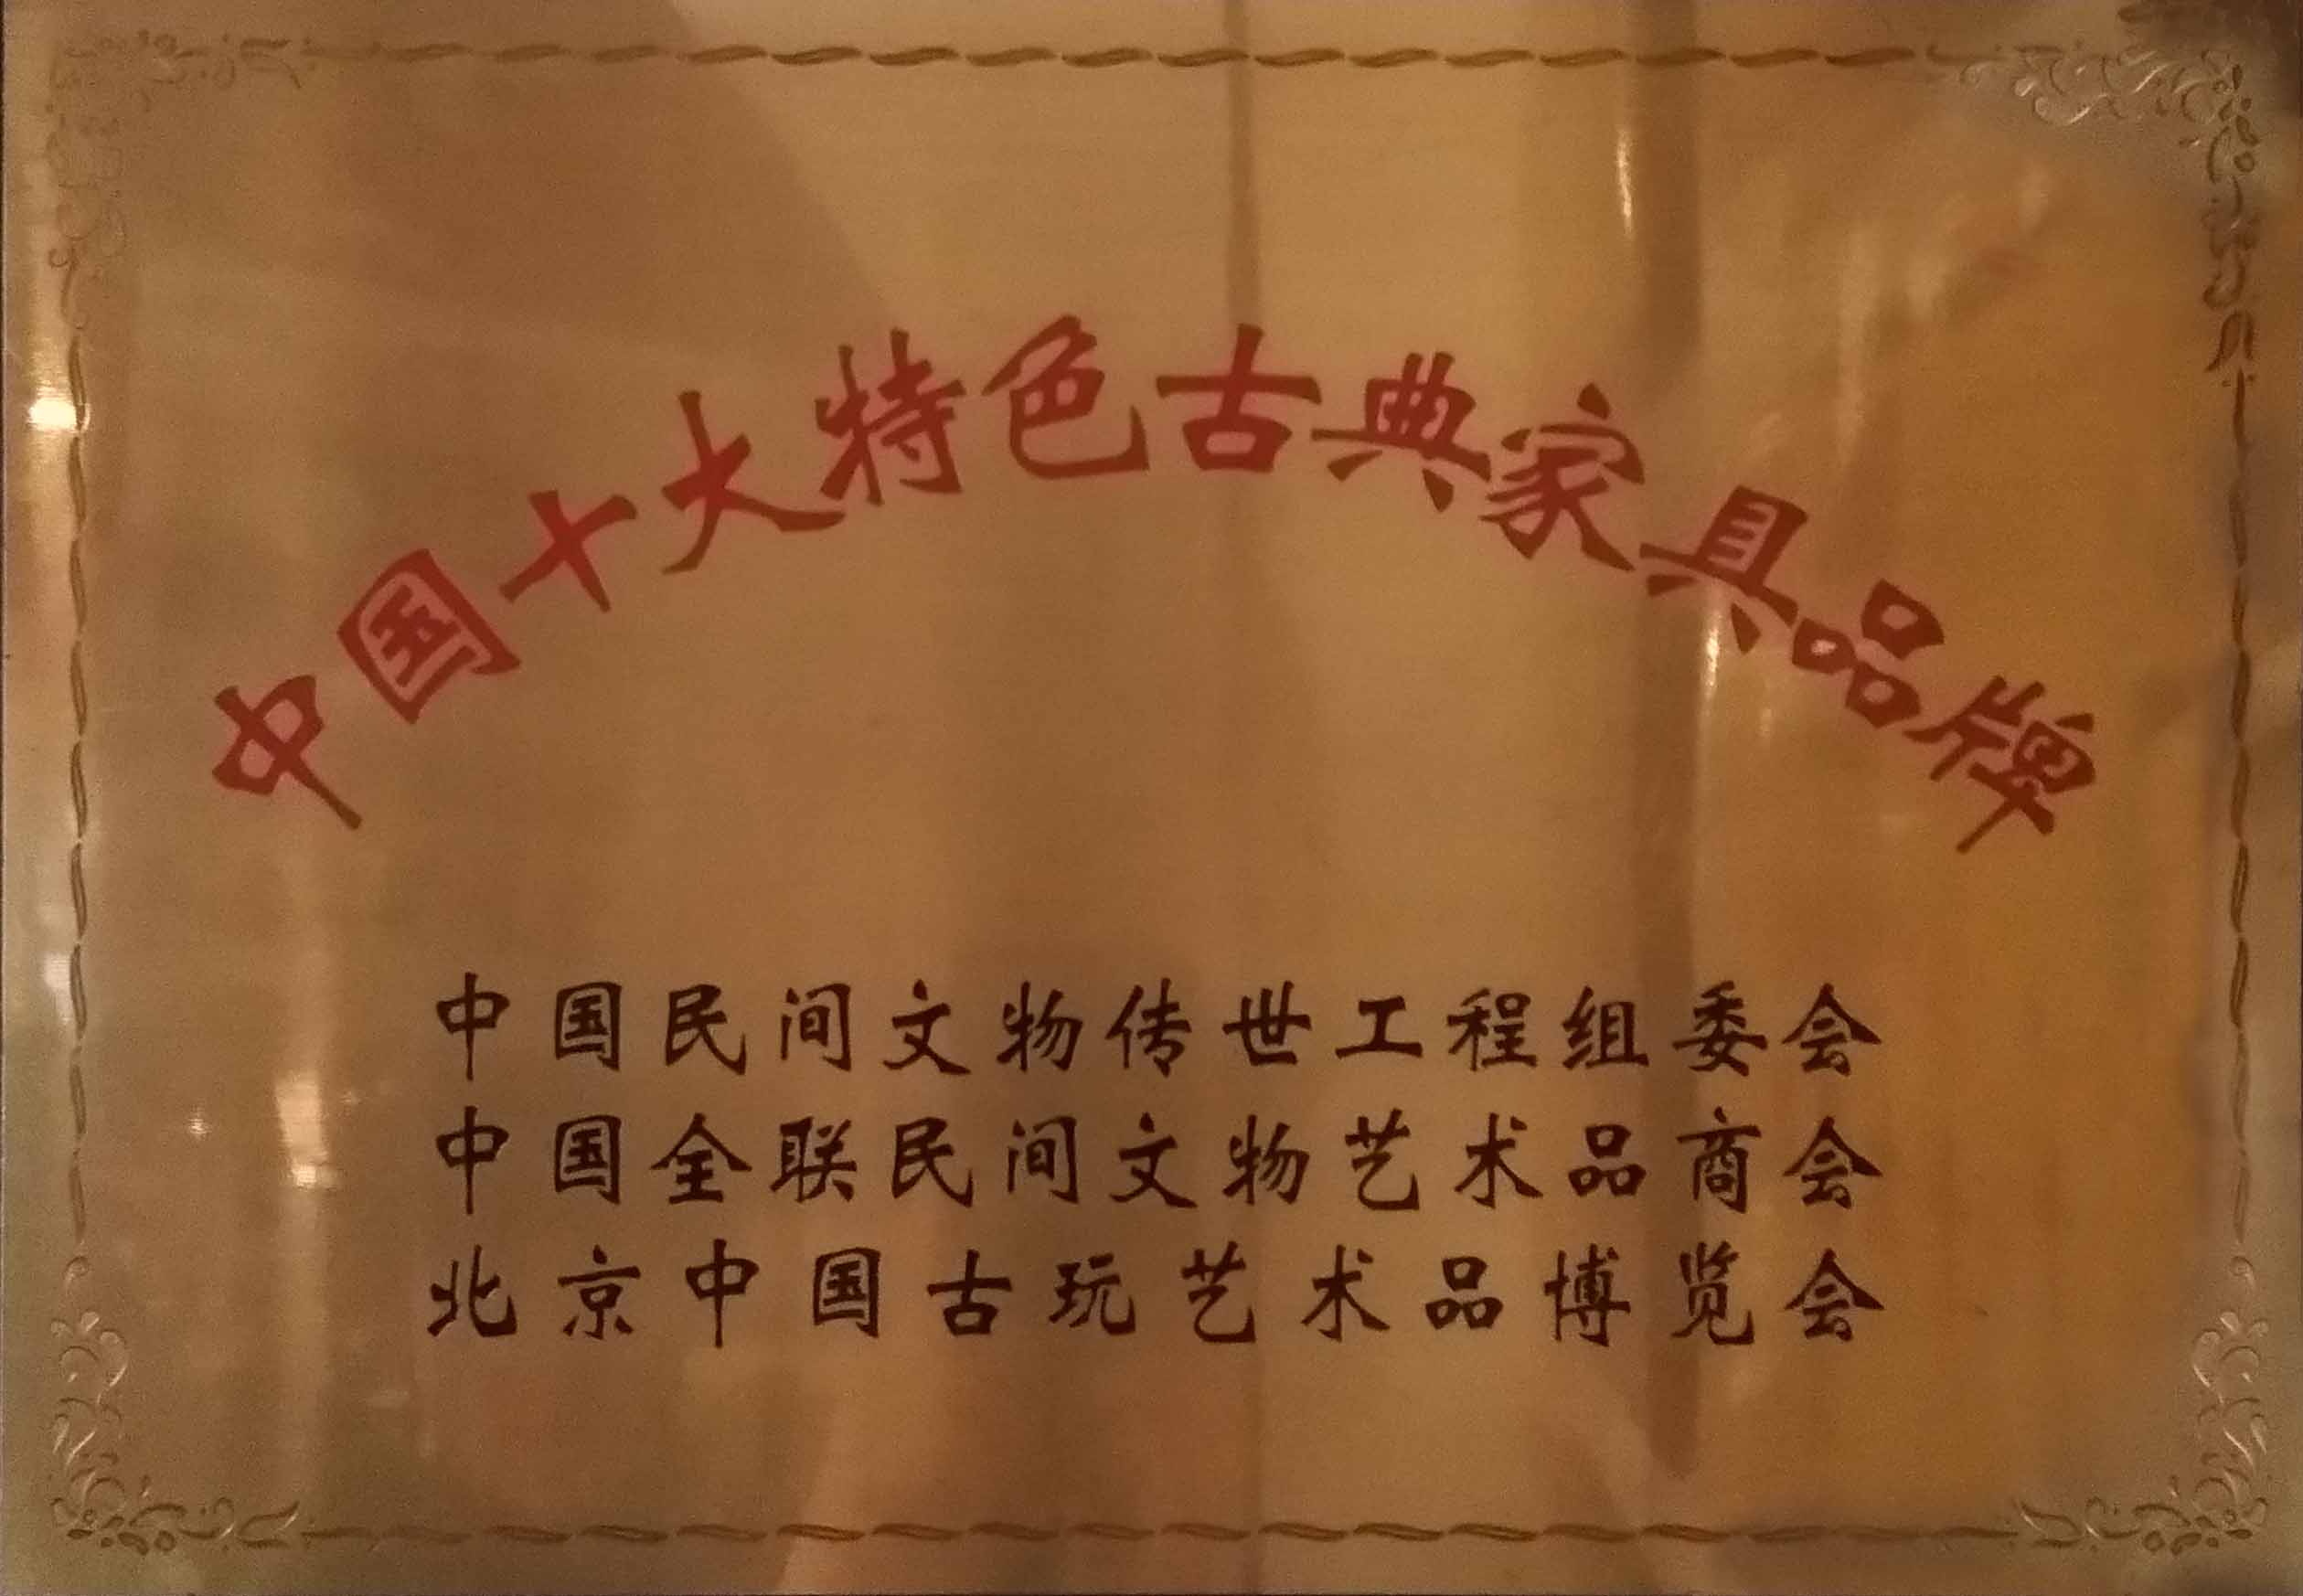 中国十大特色古典家具品牌
中国民间文物传世工程组委会
中国全联民间文物艺术品商会
北京中国古玩艺术品博览会